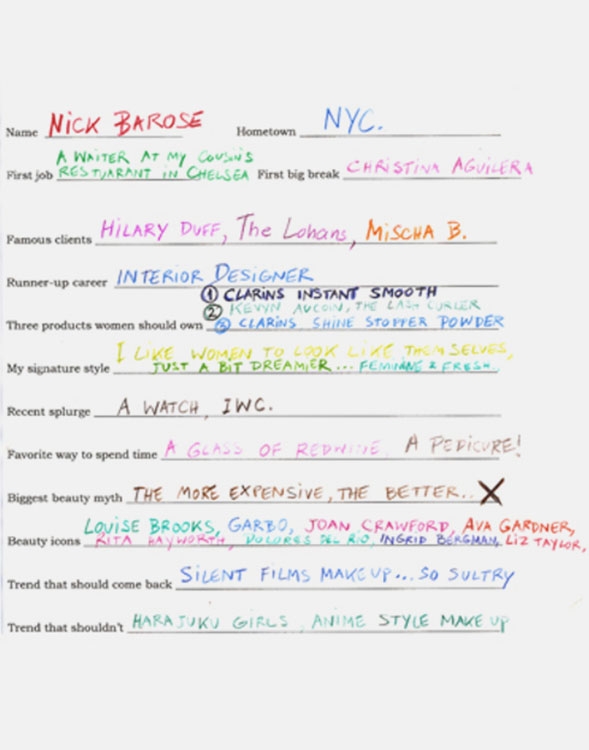 Name NICK BAROSE Hometown NYC.
A WAITER AT MY COUSIN'S
First job RESTUARANT IN CHELSEA First big break CHRISTINA AGUILERA
Famous clients HILARY DUFF, The Lohans, MISCHA B.
Runner-up career INTERIOR DESIGNER
① CLARINS INSTANT SMOOTH
② KEVYN AUCOIN, THE LASH CURLER
Three products women should own ③ CLARINS SHINE STOPPER POWDER
I LIKE WOMEN TO LOOK LIKE THEMSELVES,
My signature style JUST A BIT DREAMIER... FEMININE & FRESH.
Recent splurge A WATCH, IWC.
Favorite way to spend time A GLASS OF REDWINE, A PEDICURE!
Biggest beauty myth THE MORE EXPENSIVE, THE BETTER.. X
LOUISE BROOKS, GARBO, JOAN CRAWFORD, AVA GARDNER,
Beauty icons RITA HAYWORTH, DOLORES DEL RIO, INGRID BERGMAN, LIZ TAYLOR,
Trend that should come back SILENT FILMS MAKEUP... SO SULTRY
Trend that shouldn't HARAJUKU GIRLS, ANIME STYLE MAKE UP